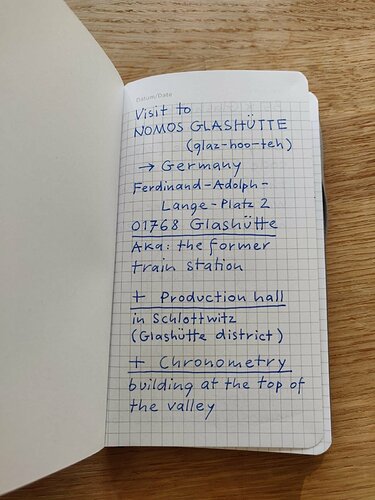 Datum/Date
Visit to
NOMOS GLASHÜTTE
(glaz-hoo-teh)
→ Germany
Ferdinand-Adolph-
Lange-Platz 2
01768 Glashütte
AKA: the former
train station
+ Production hall
in Schlottwitz
(Glashütte district)
+ Chronometry
building at the top of
the valley